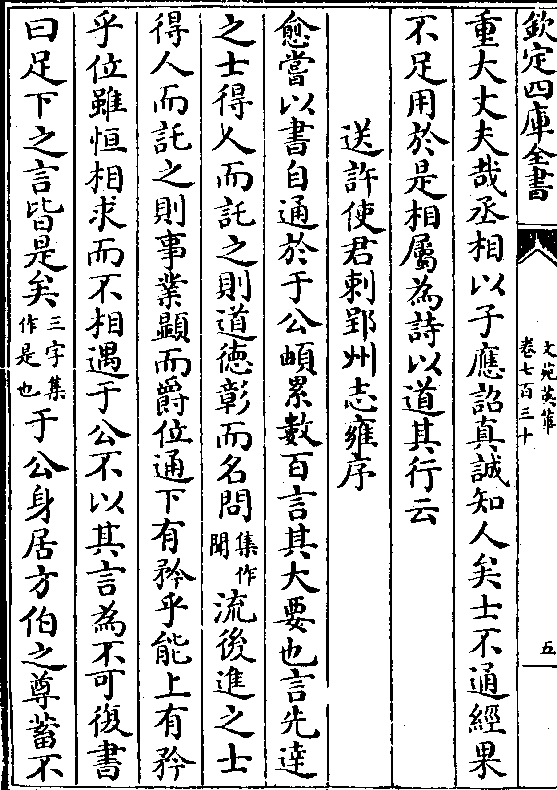 欽定四庫全書
文苑英華
卷七百三十
五
重大丈夫哉丞相以子應詔真誠知人矣士不通經果
不足用於是相屬為詩以道其行云
送許使君刺郢州志雍序
愈嘗以書自通於于公頔累數百言其大要也言先達
之士得人而託之則道德彰而名問集作聞流後進之士
得人而託之則事業顯而爵位通下有矜乎能上有矜
乎位雖恒相求而不相遇于公不以其言為不可復書
曰足下之言皆是矣三字集作是也于公身居方伯之尊蓄不